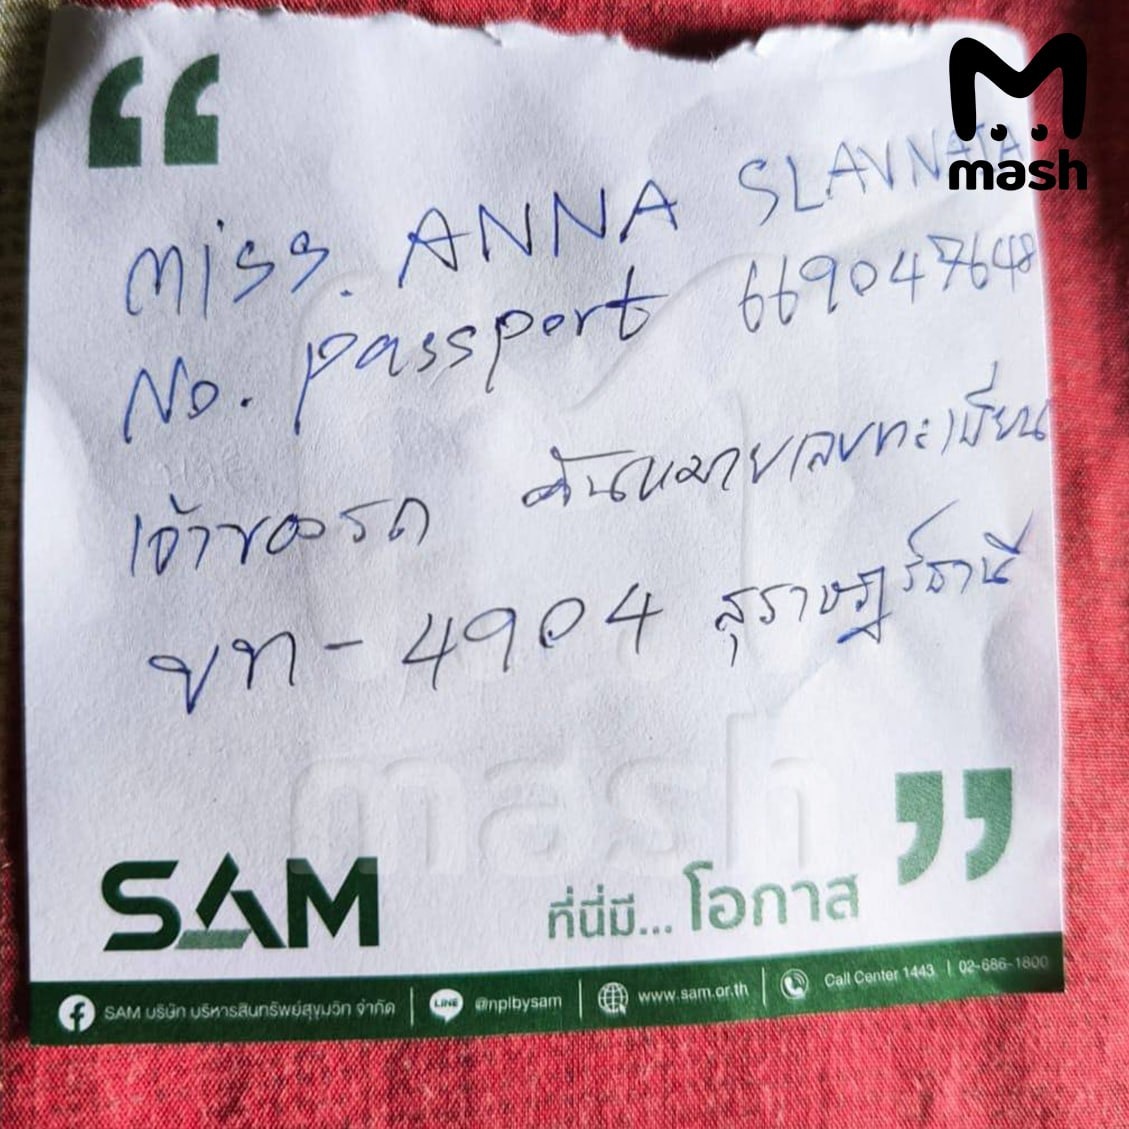 “
mash
Miss. ANNA SLAVNATA
No. passport 669047648
เจ้าของรถ คันหมายเลขทะเบียน
ขท - 4904 สุราษฎร์ธานี
mash
”
SAM
ที่นี่มี... โอกาส
SAM บริษัท บริหารสินทรัพย์สุขุมวิท จำกัด | LINE @nplbysam | www.sam.or.th | Call Center 1443 | 02-686-1800